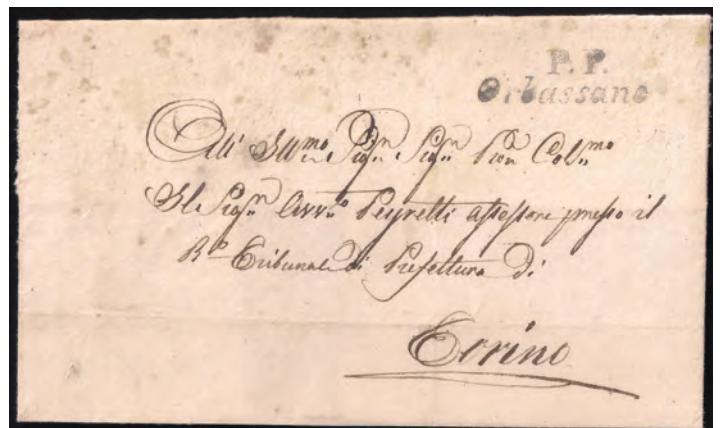 P. P.
Orbassano
All' Ill.mo Sig.r Sig.r Pron Col.mo
Il Sig.r Avv.to Peyretti assessore presso il
R.o Tribunale di Prefettura di
Torino